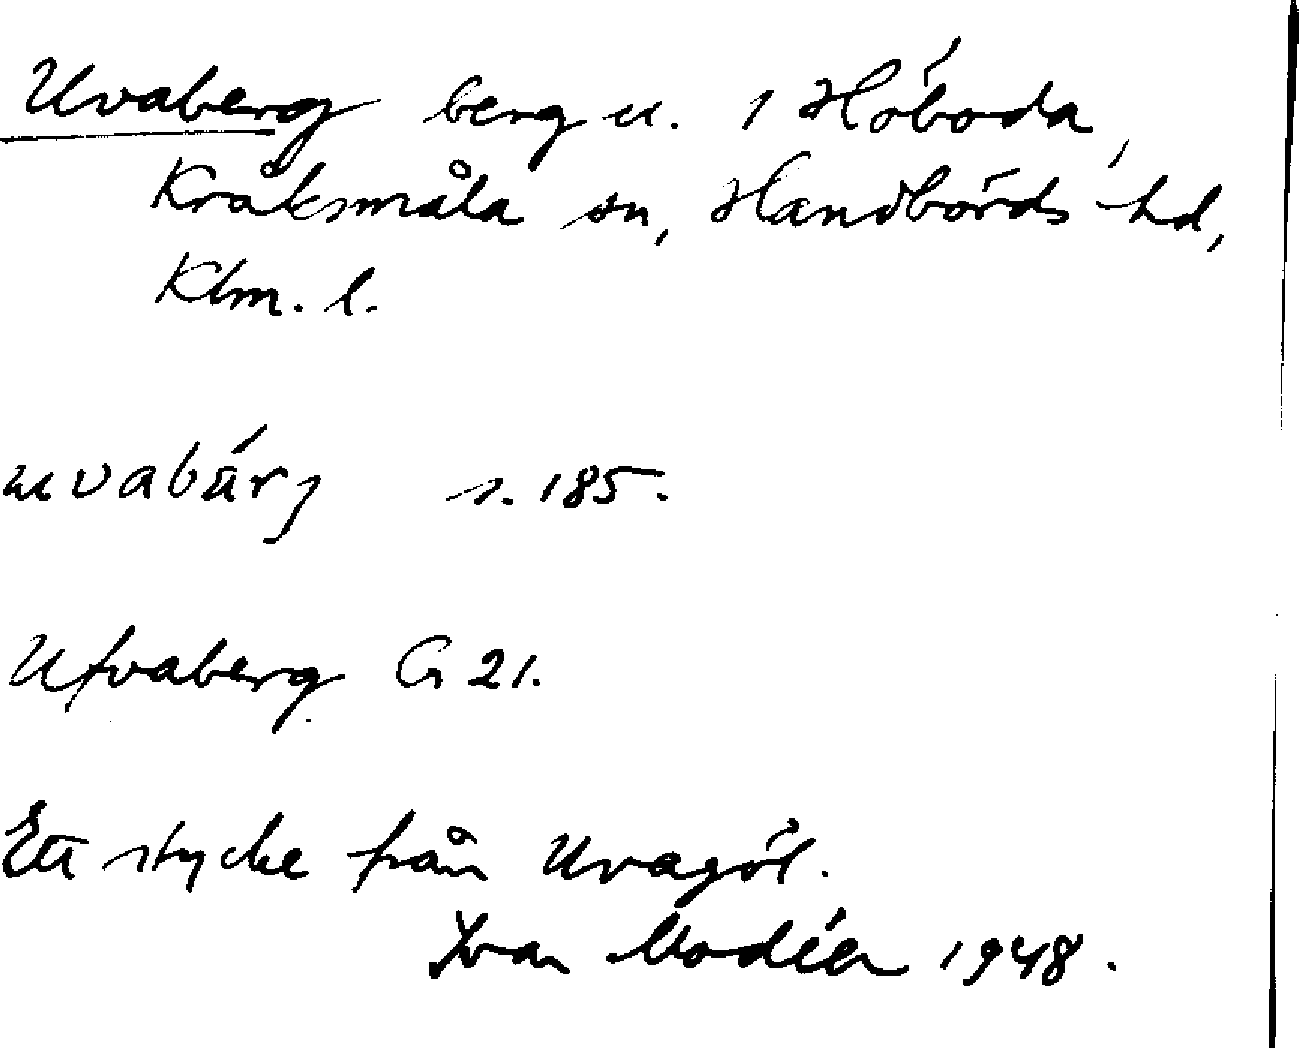 Uvaberg berg u. 1 Höboda,
Kråksmåla sn, Handbörds hd,
Klm. l.
uvabärj s. 185.
Ufvaberg G 21.
Ett stycke från Uvagöl.
Ivar Modéer 1948.